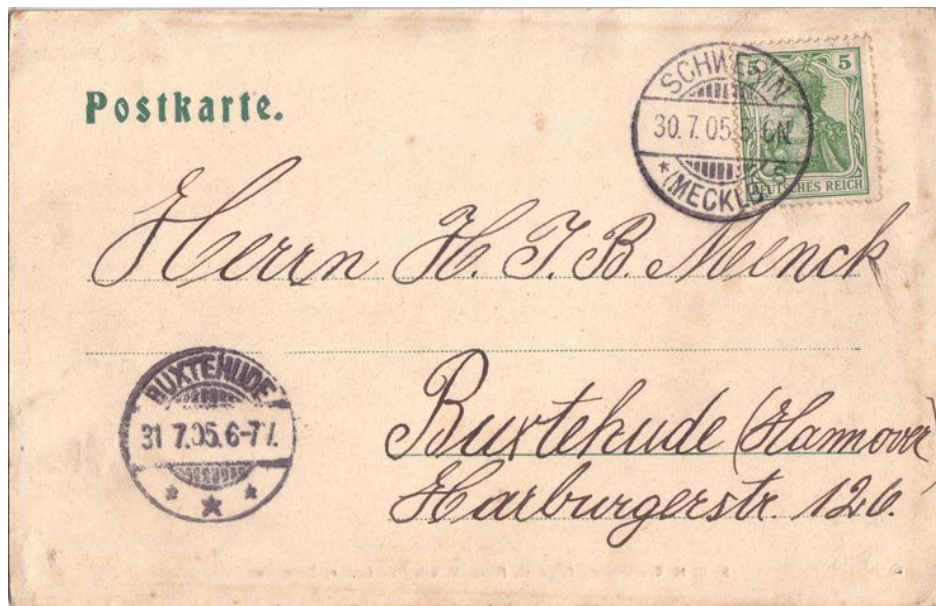 Postkarte.
SCHWERIN
30.7.05.5-6N
* (MECKLB) S
5 5
DEUTSCHES REICH
Herrn H. J. B. Menck
BUXTEHUDE
31.7.05.6-7V.
Buxtehude (Hannover)
Harburgerstr. 126.